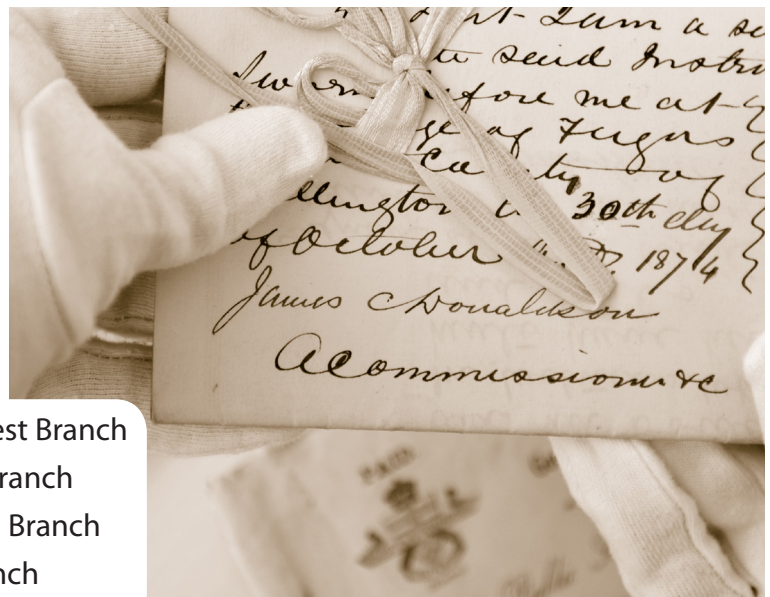 I am a
send Instru
Sworn before me at
ge of Fergus
County of
ellington 30th day
of October 1874
James Donaldson
A Commissioner &c
est Branch
ranch
Branch
nch